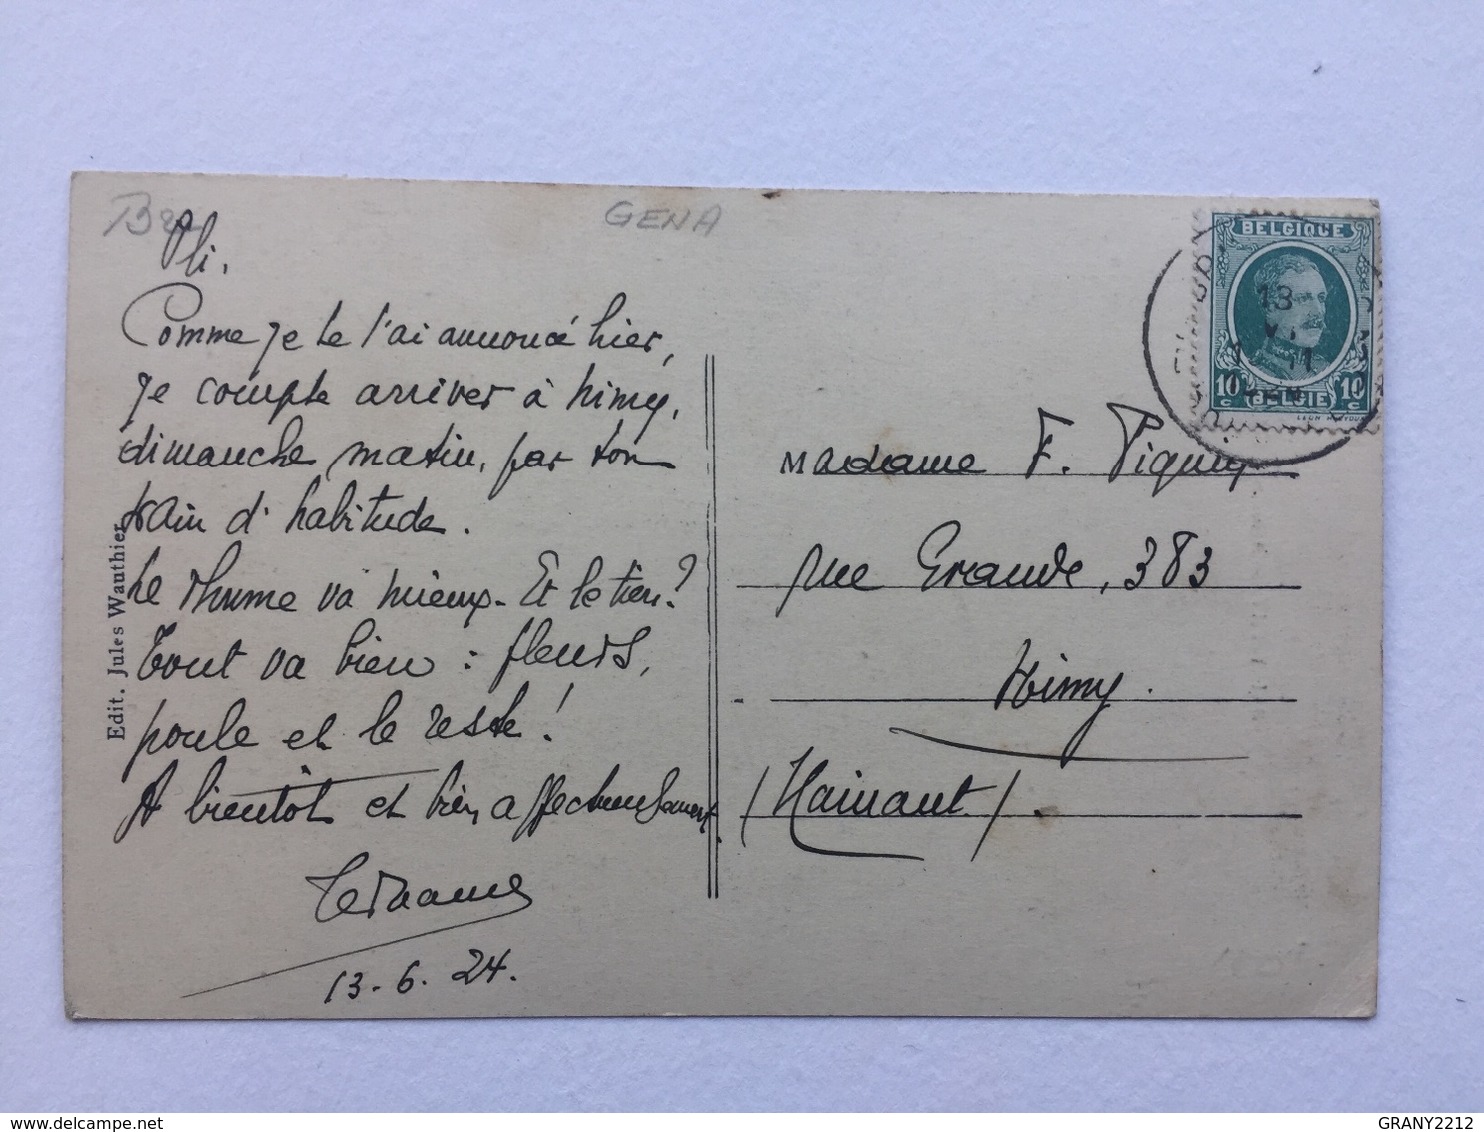 GENA
Pli.
Comme je te l'ai annoncé hier,
je compte arriver à Nimy,
dimanche matin, par ton
train d'habitude.
Le rhume va mieux. Et le tien?
Tout va bien : fleurs,
poule et le reste!
A bientôt et bien affectueusement.
13.6.24.
Edit. Jules Wauthier
BELGIQUE
13
11
10 c
10 c
BELGIE
Madame F.
rue Grande, 383
Nimy.
(Hainaut).
delcampe.net
GRANY2212